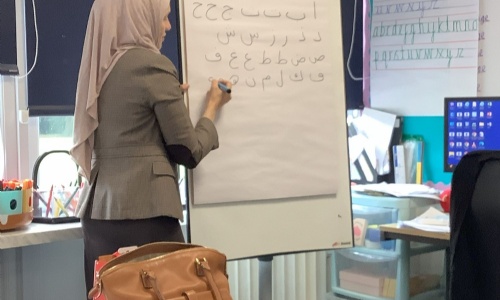 ا ب ت ث ج ح خ
د ذ ر ز س ش
ص ض ط ظ ع غ ف
ق ك ل م ن ه و
abcdefghijklmno
pqrstuvwxyz